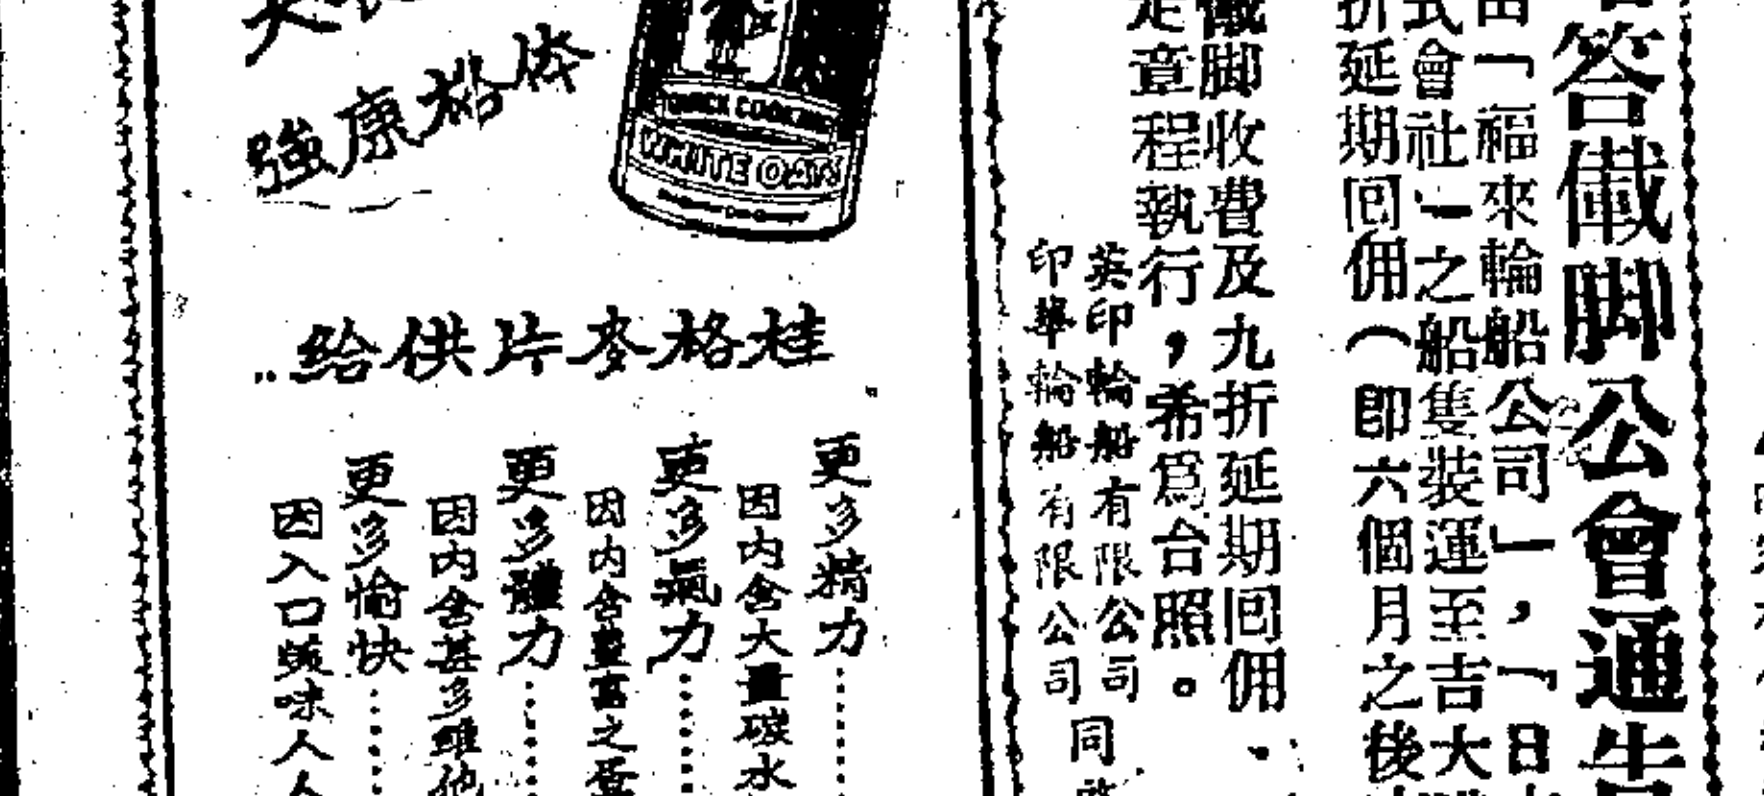 答儎脚公會通告
由「福來輪船公司」,「日
式會社」之船隻裝運至吉大
折延期回佣(即六個月之後
儎脚收費及九折延期回佣.
定章程執行,希爲台照。
英印輪船有限公司
印華輪船有限公司
同
強康
QUICK COOKING
WHITE OATS
桂格麥片供給..
更多精力……
因內含大量碳水
更多氣力……
因內含豐富之
更多體力……
因內含甚多維他
更多愉快……
因入口美味人人